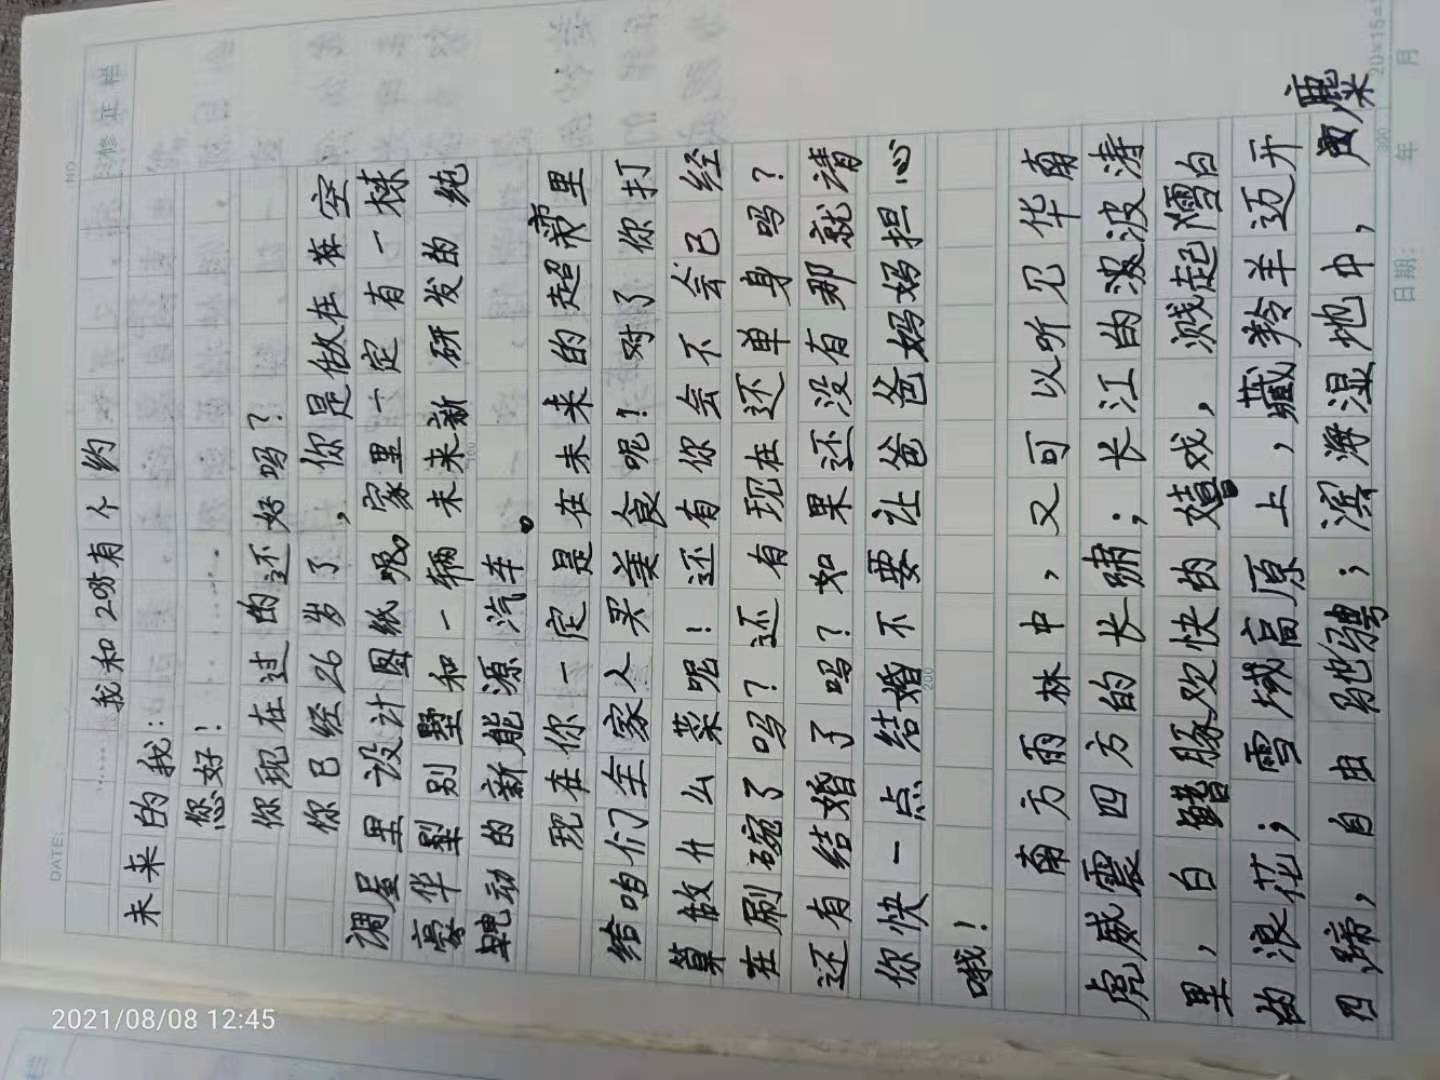 DATE:
NO
修正栏
我和20岁有个约
未来的我:
您好!
你现在过的还好吗?
你已经26岁了,你是做在在空
调屋里设计图纸呢。家里一定有一栋
豪华别墅和一辆未来新研发的纯
电动的新能源汽车。
现在你一定是在未来的超市里
给咱们全家人买美食呢!对了你打
算做什么菜呢!还有你会不会已经
在刷碗了吗?还有现在还单身吗?
还有结婚了吗?如果还没有那就请
你快一点结婚不要让爸爸妈妈担心
哦!
200
南方雨林中,又可以听见华南
虎威震四方的长啸;长江的波涛
里,白鳍豚欢快的嬉戏,溅起雪白
的浪花;雪域高原上,藏羚羊迈开
四蹄,自由驰骋;滨海湿地中,麋
20×15=300
日期: 年 月
2021/08/08 12:45
栏